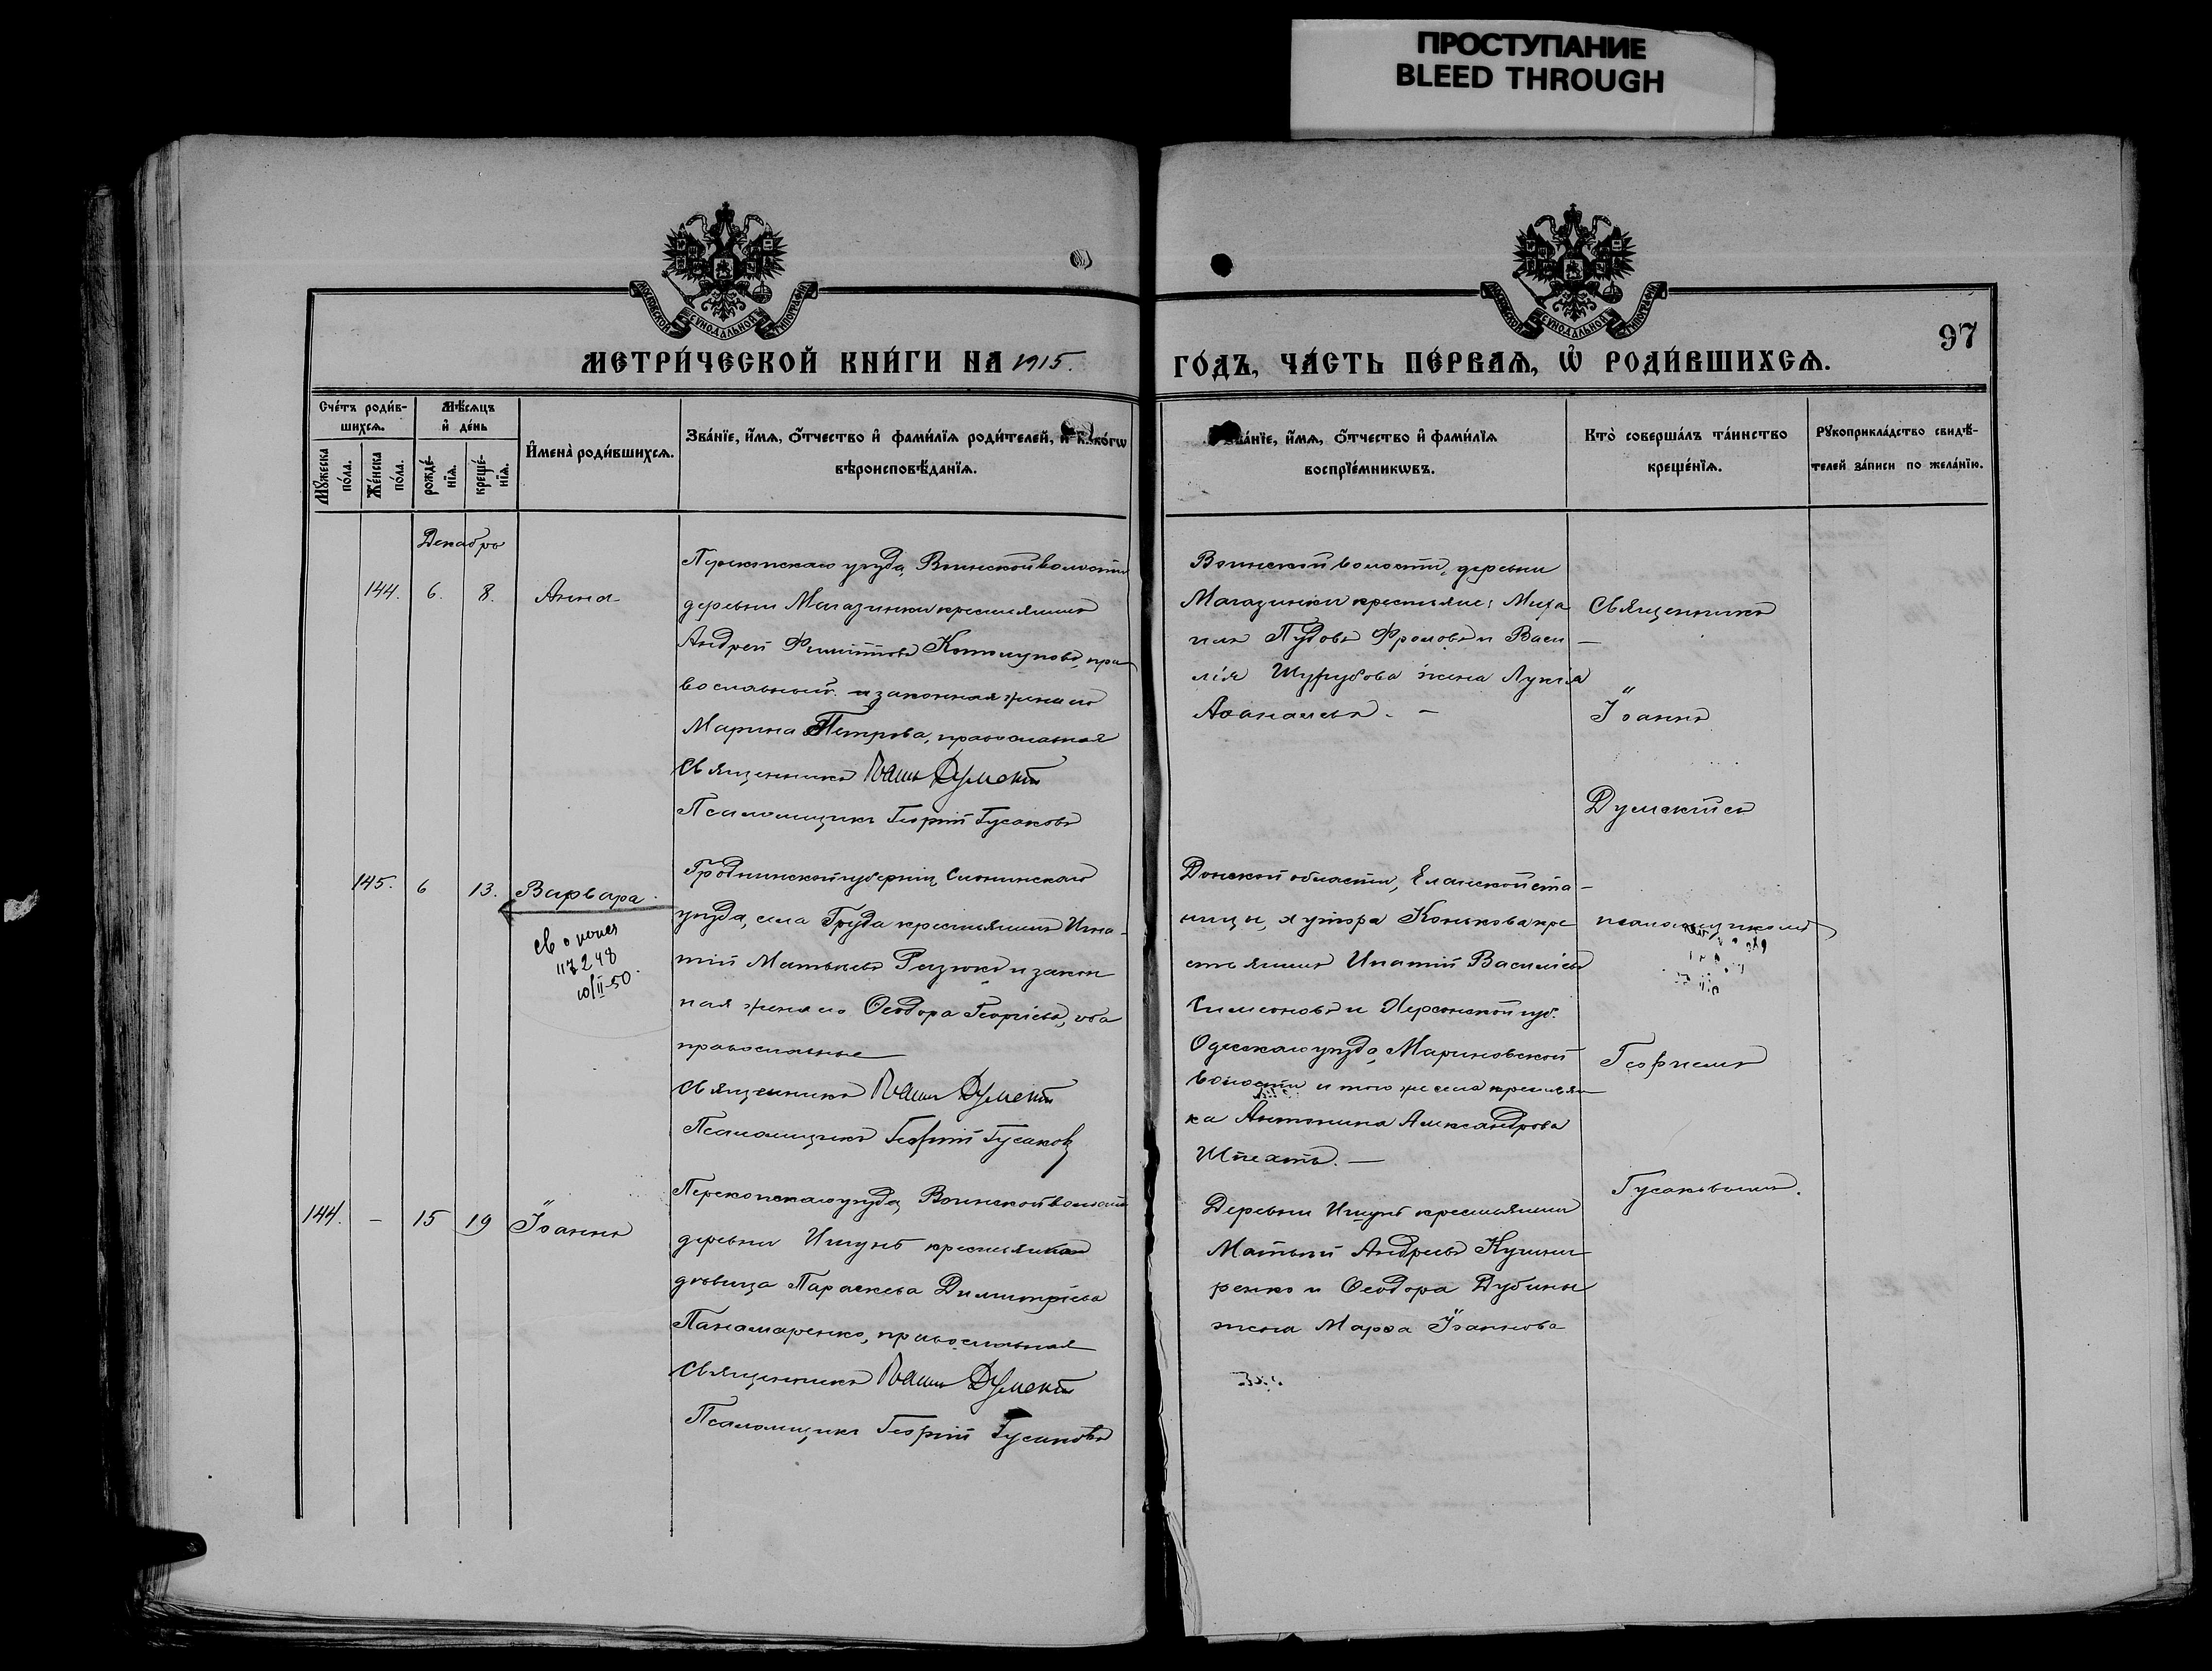 ПРОСТУПАНИЕ
BLEED THROUGH
МОСКОВСКОЙ СѴНОДАЛЬНОЙ ТИПОГРАФІИ
МОСКОВСКОЙ СѴНОДАЛЬНОЙ ТИПОГРАФІИ
97
МЕТРИ́ЧЕСКОЙ КНИ́ГИ НА 1915.
ГО́ДЪ, ЧА́СТЬ ПЕ́РВАѦ, Ѡ҆ РОДИ́ВШИХСѦ.
Сче́тъ роди́в-
шихсѧ.
Мꙋ́жеска по́ла.
Же́нска по́ла.
Мѣ́сѧцъ
и҆ де́нь
рожде́-нїѧ.
креще́-нїѧ.
И҆мена̀ роди́вшихсѧ.
Зва́нїе, и҆́мѧ, ѻ҆́тчество и҆ фами́лїѧ роди́телей, и҆ ко́гѡ
вѣроисповѣ́данїѧ.
Зва́нїе, и҆́мѧ, ѻ҆́тчество и҆ фами́лїѧ
воспрїе́мникѡвъ.
Кто̀ соверша́лъ та́инство
креще́нїѧ.
Рꙋкоприкла́дство свидѣ́-
телей за́писи по жела́нїю.
Декабрь
144. 6. 8. Анна
Перекопскаго уѣзда, Воинской волости
деревни Магазинки крестьянинъ
Андрей Филипповъ пра
вославный и законная жена его
Марина Петрова, православная
Священникъ Іоаннъ Думскій
Псаломщикъ Георгій Гусаковъ
Воинской волости, деревни
Магазинки крестьяне: Миха
илъ Пудовъ Фроловъ и Васи—
лія Шурубова жена Лукія
Аѳанасьева. —
Священникъ
Іоаннъ
Думскій съ
145. 6 13. Варвара
св о рожд
117248
10/II-50.
Гродненской губерніи, Слонимскаго
уѣзда, села Груда крестьянинъ Игна-
тій Матвѣевъ и закон
ная жена его Ѳеодора Георгіева, оба
православные
Священникъ Іоаннъ Думскій
Псаломщикъ Георгій Гусаковъ
Донской области, Еланской ста—
ницы, хутора Конькова кре
стьянинъ Ипатій Василіевъ
Симоновъ и Херсонской губ.
Одесскаго уѣзда, Мариновской
волости и того же села крестьян
ка Антонина Александрова
псаломщикомъ
Георгіемъ
Гусаковымъ.
144. – 15 19 Іоаннъ
Перекопскаго уѣзда, Воинской волости
деревни Ишунь крестьянка
дѣвица Параскева Димитріева
Панамаренко, православная
Священникъ Іоаннъ Думскій
Псаломщикъ Георгій Гусаковъ
Деревни Ишунь крестьянинъ
Матвѣй Андреевъ Кучеи
ренко и Ѳеодора Дубины
жена Марѳа Іоаннова